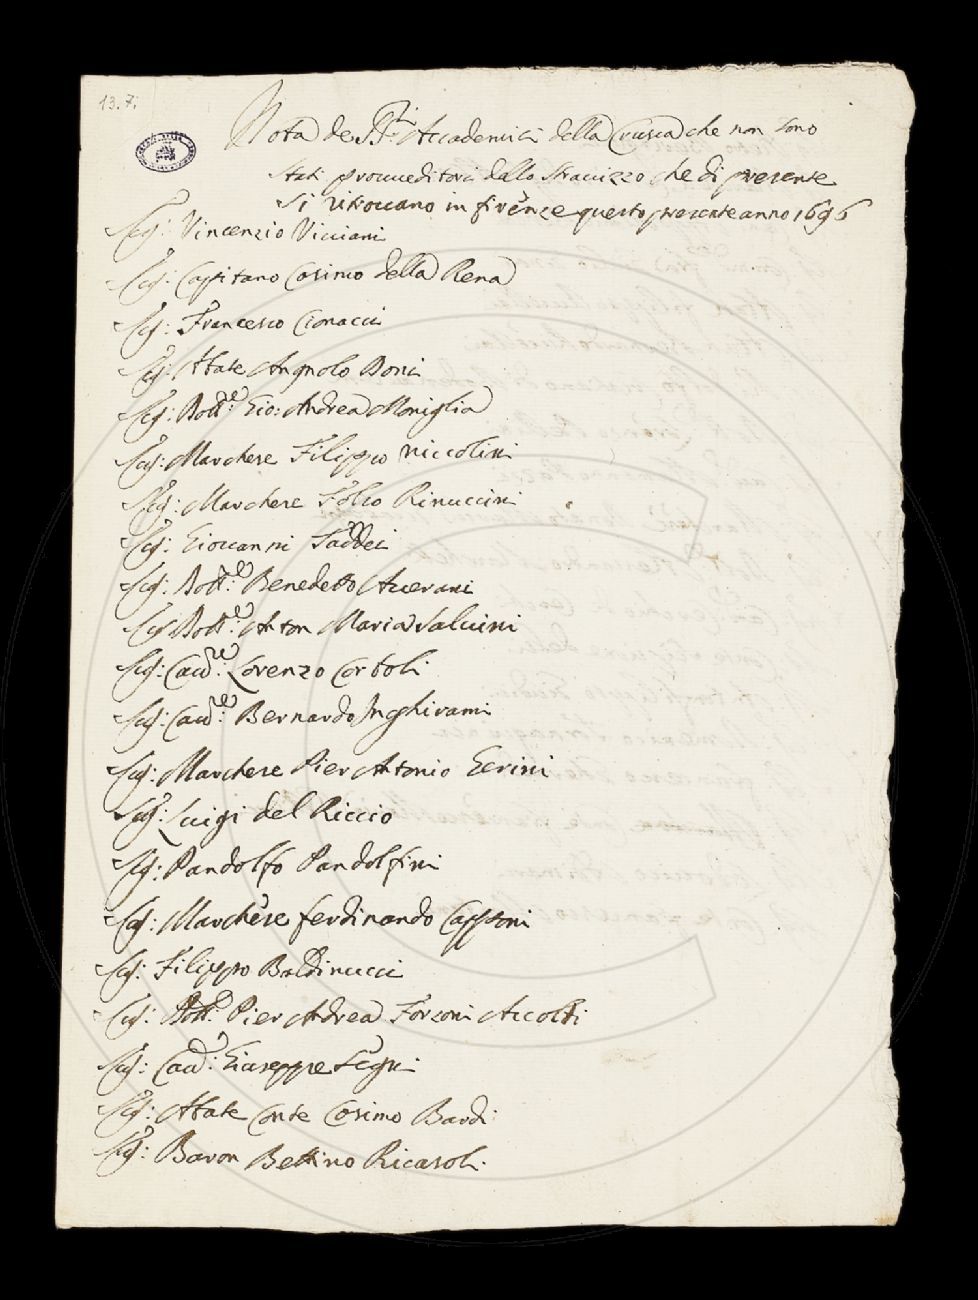 13.7.
Nota de SS.ri Accademici della Crusca che non sono
stati provveditori dello Stravizzo che di presente
si ritrovano in firenze questo presente anno 1696
Sig: Vincenzio Viviani
Sig: Capitano Cosimo della Rena
Sig: Francesco Cionacci
Sig: Abate Angnolo Doni
Sig: Dott.re Gio: Andrea Moniglia
Sig: Marchese Filippo Niccolini
Sig: Marchese Folco Rinuccini
Sig: Giovanni Taddei
Sig: Dott.re Benedetto Averani
Sig Dott.re Anton Maria Salvini
Sig: Cav.re Lorenzo Corboli
Sig: Cav.re Bernardo Inghirami
Sig: Marchese Pier Antonio Gerini
Sig: Luigi del Riccio
Sig: Pandolfo Pandolfini
Sig: Marchese ferdinando Capponi
Sig: Filippo Baldinucci
Sig: Dott.e Pier Andrea Forzoni Accolti
Sig: Cav.e Giuseppe Segni
Sig: Abate Conte Cosimo Bardi
Sig: Baron Bettino Ricasoli